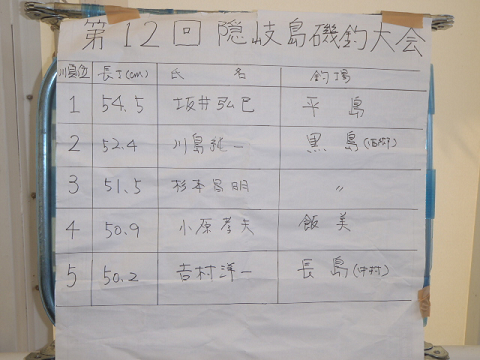 第12回 隠岐島磯釣大会
順位 長寸(cm) 氏 名 釣場
1 54.5 坂井弘巳 平 島
2 52.4 川島 一 黒 島
3 51.5 杉本昌明 〃
4 50.9 小原孝夫 飯 美
5 50.2 吉村洋一 長 島(中村)